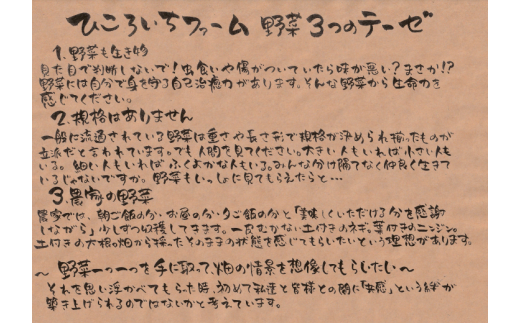 ひころいちファーム 野菜3つのテーゼ
1.野菜も生き物
見た目で判断しないで!虫食いや傷がついていたら味が悪い?まさか!?
野菜には自分で身を守る自己治癒力があります。そんな野菜から生命力を
感じてください。
2.規格はありません
一般に流通されている野菜は重さや長さ形で規格が決められ揃ったものが
立派だと言われています。でも人間を見てください。大きい人もいれば小さい人も
いる。細い人もいればふくよかな人もいる。みんな分け隔てなく仲良く生きて
いるじゃないですか。野菜もいっしょに見てもらえたらと…
3.農家の野菜
農家では、朝ご飯の分・お昼の分・夕ご飯の分と「美味しくいただける分を感謝
しながら」少しずつ収穫してきます。一皮むかない土付きのネギ、葉付きのニンジン。
土付きの大根。畑から採ったそのままの状態を感じてもらいたいという理想があります。
~野菜一つ一つを手に取って、畑の情景を想像してもらいたい~
それを思い浮かべてもらった時、初めて私達と皆様との間に「共感」という絆が
築き上げられるのではないかと考えています。